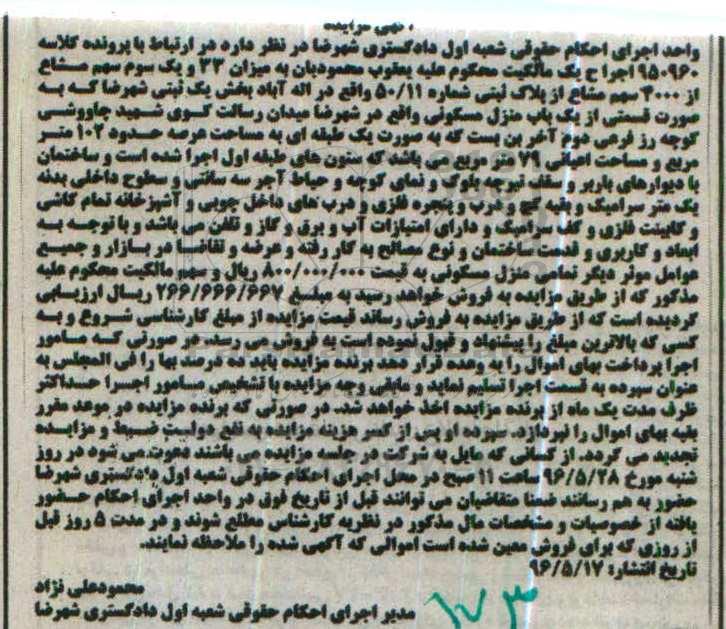 آگهی مزایده
واحد اجرای احکام حقوقی شعبه اول دادگستری شهرضا در نظر دارد در ارتباط با پرونده کلاسه
۹۵۰۹۶۰ اجرا ح یک مالکیت محکوم علیه یعقوب محمودیان به میزان ۳۳ و یک سوم سهم مشاع
از ۴۰۰۰ سهم مشاع از پلاک ثبتی شماره ۵۰/۱۱ واقع در اله آباد بخش یک ثبتی شهرضا که به
صورت قسمتی از یک باب منزل مسکونی واقع در شهرضا میدان رسالت کوی شهید چاووشی
کوچه رز فرعی دوم آخر بن بست که به صورت یک طبقه ای به مساحت عرصه حدود ۱۰۲ متر
مربع و مساحت اعیانی ۷۹ متر مربع می باشد که ستون های طبقه اول اجرا شده است و ساختمان
با دیوارهای باربر و سقف تیرچه بلوک و نمای کوچه و حیاط آجر سه سانتی و سطوح داخلی بدنه
یک متر سرامیک و بقیه گچ و درب و پنجره فلزی و درب های داخل چوبی و آشپزخانه تمام کاشی
و کابینت فلزی و کف سرامیک و دارای امتیازات آب و برق و گاز و تلفن می باشد و با توجه به
ابعاد و کاربری و قدمت ساختمان و نوع مصالح به کار رفته و عرضه و تقاضا در بازار و جمیع
عوامل موثر دیگر تمامی منزل مسکونی به قیمت ۸۰۰/۰۰۰/۰۰۰ ریال و سهم مالکیت محکوم علیه
مذکور که از طریق مزایده به فروش خواهد رسید به مبلغ ۲۶۶/۶۶۶/۶۶۷ ریال ارزیابی
گردیده است که از طریق مزایده به فروش رساند قیمت مزایده از مبلغ کارشناسی شروع و به
کسی که بالاترین مبلغ را پیشنهاد و قبول نموده است به فروش می رسد. در صورتی که مامور
اجرا پرداخت بهای اموال را به وعده قرار دهد برنده مزایده باید ده درصد بها را فی المجلس به
عنوان سپرده به قسمت اجرا تسلیم نماید و مابقی وجه مزایده با تشخیص مامور اجرا حداکثر
ظرف مدت یک ماه از برنده مزایده اخذ خواهد شد. در صورتی که برنده مزایده در موعد مقرر
بقیه بهای اموال را نپردازد. سپرده او پس از کسر هزینه مزایده به نفع دولت ضبط و مزایده
تجدید می گردد. از کسانی که مایل به شرکت در جلسه مزایده می باشند دعوت می شود در روز
شنبه مورخ ۹۶/۵/۲۸ ساعت ۱۱ صبح در محل اجرای احکام حقوقی شعبه اول دادگستری شهرضا
حضور به هم رسانند ضمنا متقاضیان می توانند قبل از تاریخ فوق در واحد اجرای احکام حضور
یافته از خصوصیات و مشخصات مال مذکور در نظریه کارشناس مطلع شوند و در مدت ۵ روز قبل
از روزی که برای فروش معین شده است اموالی که آگهی شده را ملاحظه نمایند.
تاریخ انتشار: ۹۶/۵/۱۷
محمودعلی نژاد
مدیر اجرای احکام حقوقی شعبه اول دادگستری شهرضا